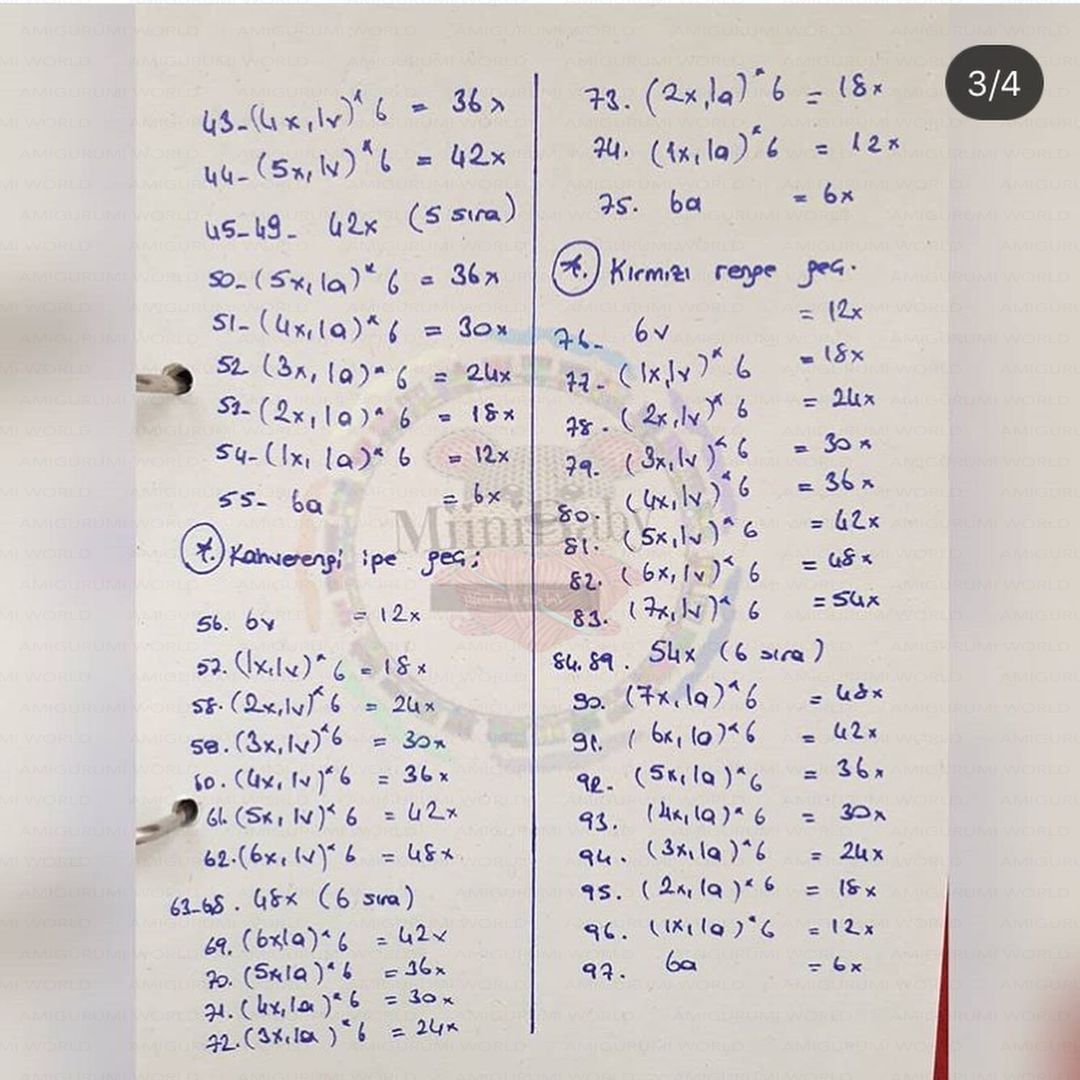 3/4
43-(4x,1v)*6 = 36x
44-(5x,1v)*6 = 42x
45-49- 42x (5 sıra)
50-(5x,1a)*6 = 36x
51-(4x,1a)*6 = 30x
52 (3x,1a)*6 = 24x
53-(2x,1a)*6 = 18x
54-(1x,1a)*6 = 12x
55- 6a = 6x
*. Kahverengi ipe geç:
56. 6v = 12x
57.(1x,1v)*6 = 18x
58.(2x,1v)*6 = 24x
58.(3x,1v)*6 = 30x
60.(4x,1v)*6 = 36x
61.(5x,1v)*6 = 42x
62.(6x,1v)*6 = 48x
63-68. 48x (6 sıra)
69.(6x1a)*6 = 42x
70.(5x1a)*6 = 36x
71.(4x,1a)*6 = 30x
72.(3x,1a)*6 = 24x
73.(2x,1a)*6 = 18x
74.(1x,1a)*6 = 12x
75. 6a = 6x
*. Kırmızı renge geç.
76- 6v = 12x
77-(1x,1v)*6 = 18x
78.(2x,1v)*6 = 24x
79.(3x,1v)*6 = 30x
80.(4x,1v)*6 = 36x
81.(5x,1v)*6 = 42x
82.(6x,1v)*6 = 48x
83.(7x,1v)*6 = 54x
84.89. 54x (6 sıra)
90.(7x,1a)*6 = 48x
91.(6x,1a)*6 = 42x
92-(5x,1a)*6 = 36x
93.(4x,1a)*6 = 30x
94.(3x,1a)*6 = 24x
95.(2x,1a)*6 = 18x
96.(1x,1a)*6 = 12x
97. 6a = 6x
Miini Baby
AMIGURUMI WORLD